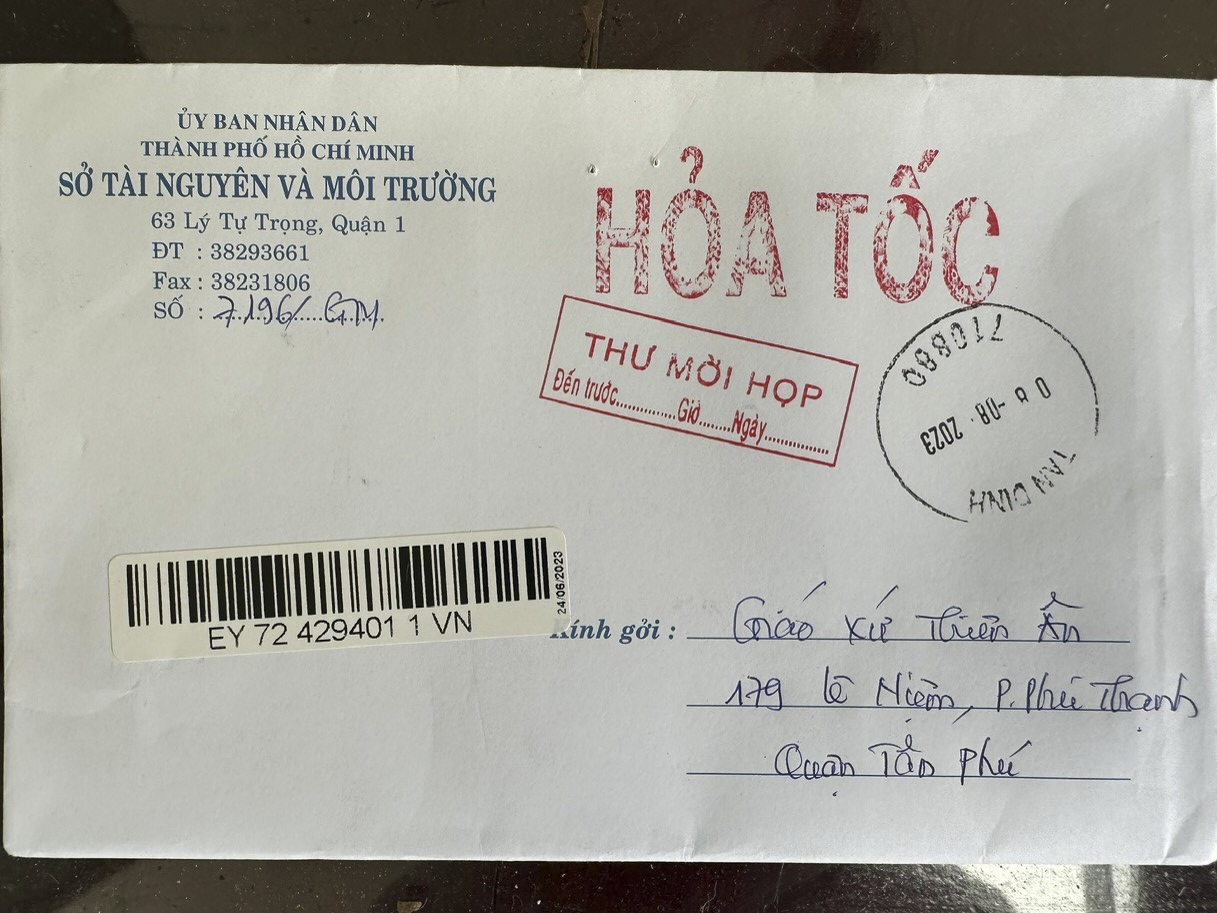 ỦY BAN NHÂN DÂN
THÀNH PHỐ HỒ CHÍ MINH
SỞ TÀI NGUYÊN VÀ MÔI TRƯỜNG
63 Lý Tự Trọng, Quận 1
ĐT : 38293661
Fax : 38231806
SỐ : 7196/.....GM.
HỎA TỐC
THƯ MỜI HỌP
Đến trước...............Giờ........Ngày...............
710880
08 -08- 2023
TAN DINH
24/06/2023
EY 72 429401 1 VN
Kính gởi : Giáo xứ Thiên Ân
179 Lê Niệm, P. Phú Thạnh
Quận Tân Phú